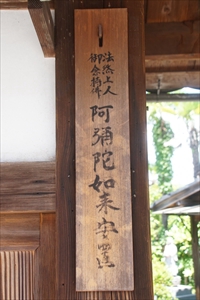 法然上人
御念持佛
阿彌陀如来安置